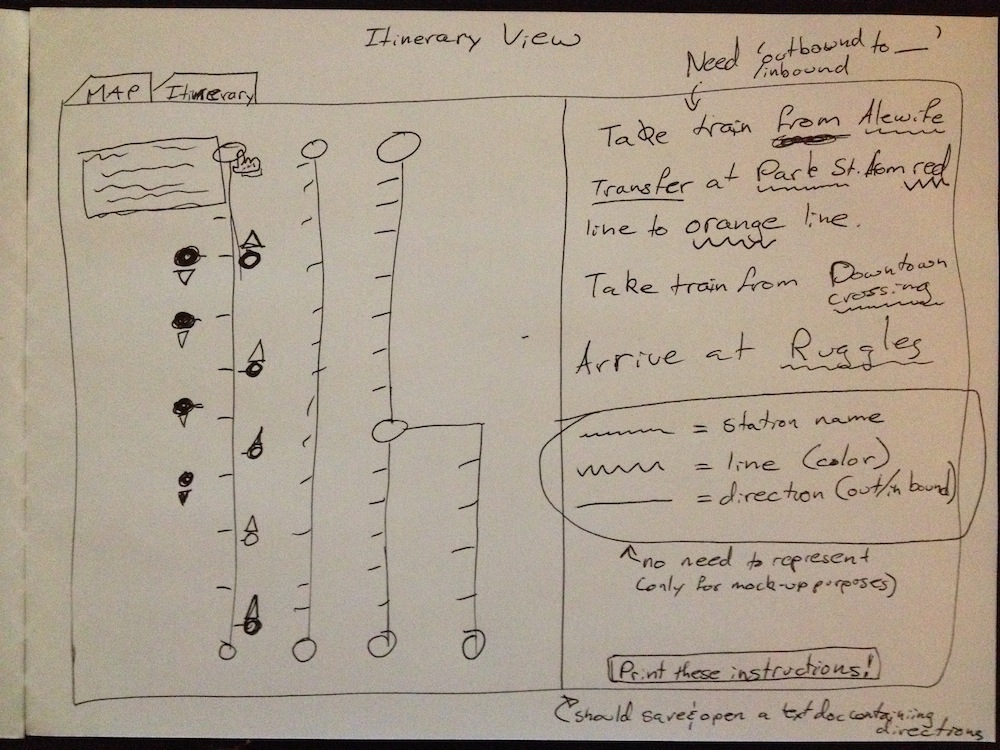 Itinerary View
Need 'outbound to __'
/inbound
MAP
Itinerary
Take train from Alewife
Transfer at Park St. from red
line to orange line.
Take train from Downtown
crossing
Arrive at Ruggles
= station name
= line (color)
= direction (out/in bound)
no need to represent
(only for mock-up purposes)
Print these instructions!
should save & open a text doc containiing
directions